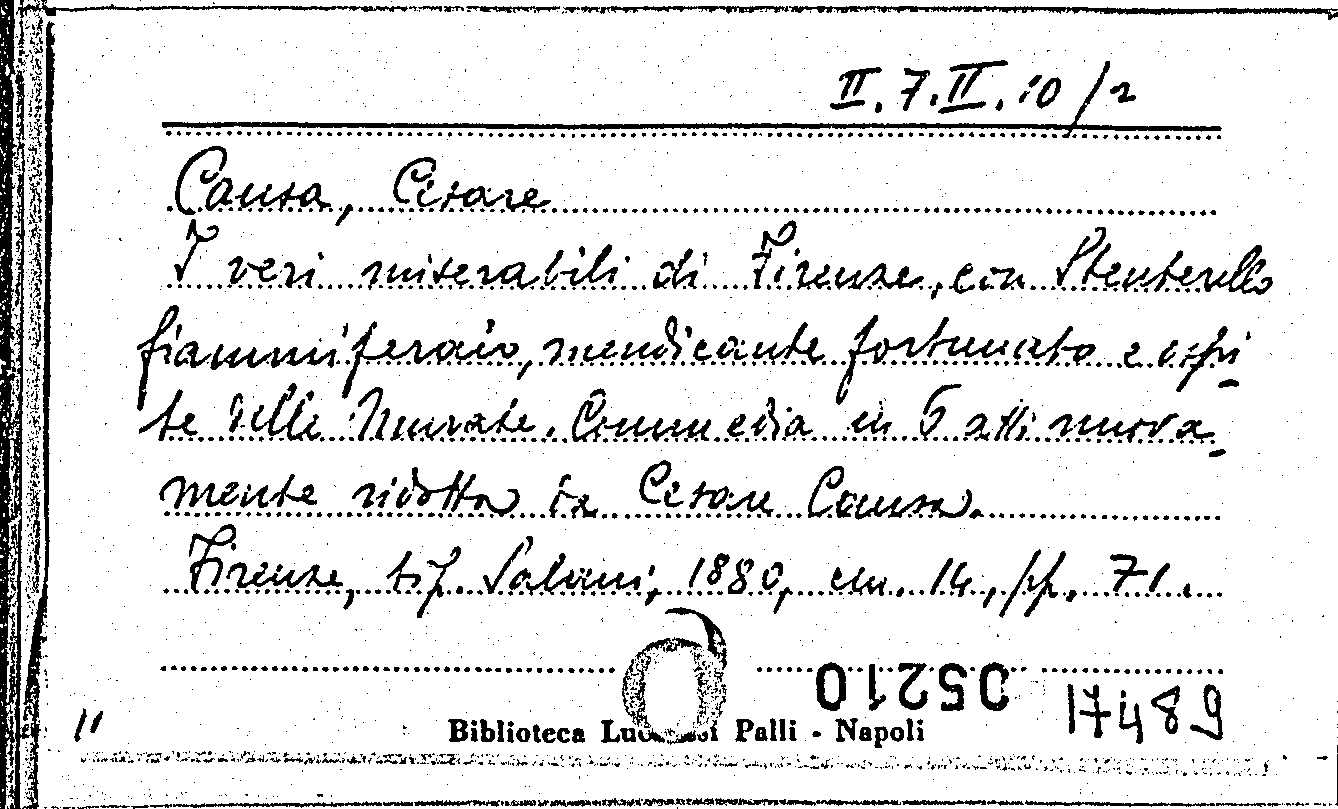 II.7.II.10/2
Causa, Cesare
I veri miserabili di Firenze, con Stenterello
fiammiferaio, mendicante fortunato e ospi-
te delle Murate. Commedia in 5 atti nuova-
mente ridotta da Cesare Causa.
Firenze, tip. Salani, 1880, cm. 14, pp. 71.
05210
17489
11
Biblioteca Lucchesi Palli - Napoli